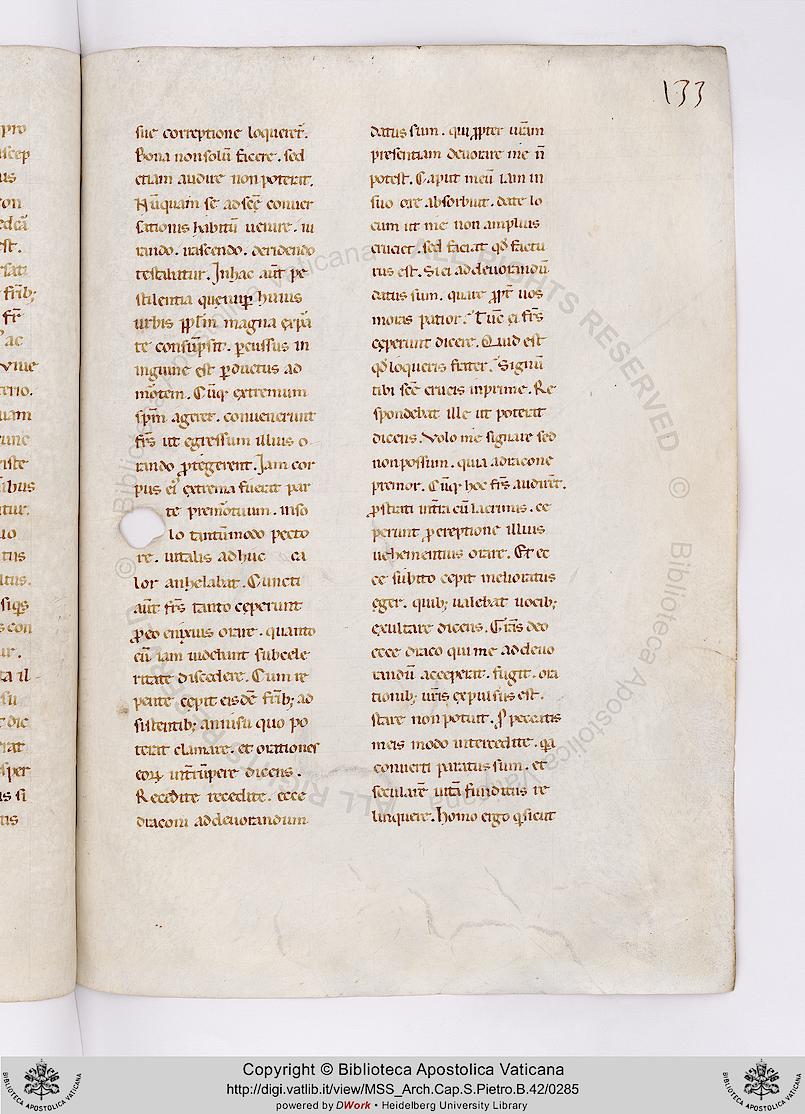 133
sue correptione loqueret᷑.
Bona non solū facere. sed
etiam audire non poterat.
Nūquam se ad sc̄ę conuer
sationis habitū uenire. iu
rando. irascendo. deridendo
testabatur. In hac aūt pe
stilentia que nup̄ huius
urbis pp̄lm magna ex pa
te consūpsit. pcussus in
inguine est perductus ad
mōtem. Cūq; extremum
sp̄m ageret. conuenerunt
fr̄s ut egressum illius o
rando ꝓtegerent. Iam cor
pus ei᷒ extrema fuerat par
te premōtuum. in so
lo tantūmodo pecto
re. uitalis adhuc ca
lor anhelabat. Cuncti
aūt fr̄s tanto ceperunt
ꝓ eo enixius orare. quanto
eū iam uidebant sub cele
ritate discedere. Cum re
pente cepit eisdē fr̄ib; ad
sistentib; annisu quo po
terat clamare. et orationes
eoꝝ intˉrūpere dicens.
Recedite recedite. ecce
draconi ad deuorandum
datus sum. qui ꝓpter ur̄am
presentiam deuorare me n̄
potest. Caput meū iam in
suo ore absorbuit. date lo
cum ut me non amplius
cruciet. sed faciat qd̄ factu
rus est. Si ei ad deuorandū
datus sum. quare ꝓpt̄ uos
moras patior. Tūc ei fr̄s
ceperunt dicere. Quid est
qd̄ loqueris frater. Signū
tibi sc̄ę crucis inprime. Re
spondebat ille ut poterat
dicens. Volo me signare sed
non possum. quia a dracone
premor. Cūq; hoc fr̄s audirēt.
ꝓstrati in terra cū lacrimis. ce
perunt ꝓ ereptione illius
uehementius orare. Et ec
ce subito cepit melioratus
eger. quib; ualebat uocib;
exultare dicens. Gr̄as deo
ecce draco qui me ad deuo
randū acceperat. fugit. ora
tionib; ur̄is expulsus est.
stare non potuit. ꝓ peccatis
meis modo intercedite. qa
conuerti paratus sum. et
secularē uitā funditus re
linquere. Homo ergo q̄ sicut
Copyright © Biblioteca Apostolica Vaticana
http://digi.vatlib.it/view/MSS_Arch.Cap.S.Pietro.B.42/0285
powered by DWork • Heidelberg University Library